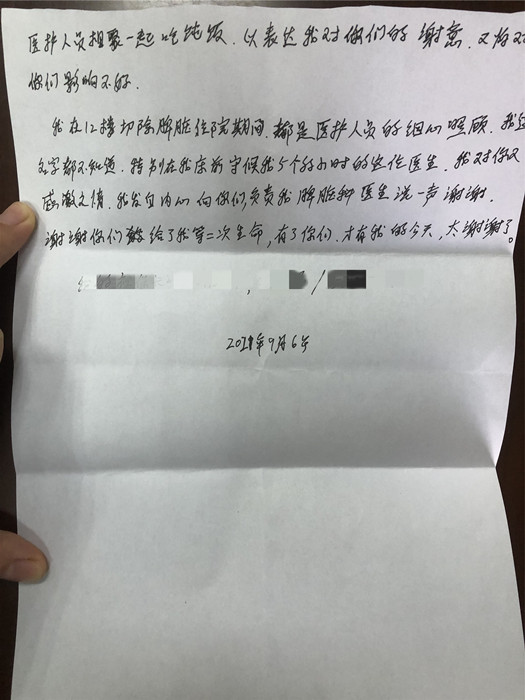 医护人员想聚一起吃饨饭，以表达我对你们的谢意，又怕对
你们影响不好.
我在12楼切除脾脏住院期间，都是医护人员的细心照顾，我连
名字都不知道，特别在我床前守候我5个好小时的这位医生，我对你仅
感激之情，我发自内心向你们负责我脾脏肿医生说一声谢谢，
谢谢你们给了我第二次生命，有了你们，才有我的今天，太谢谢了。
年9月6号